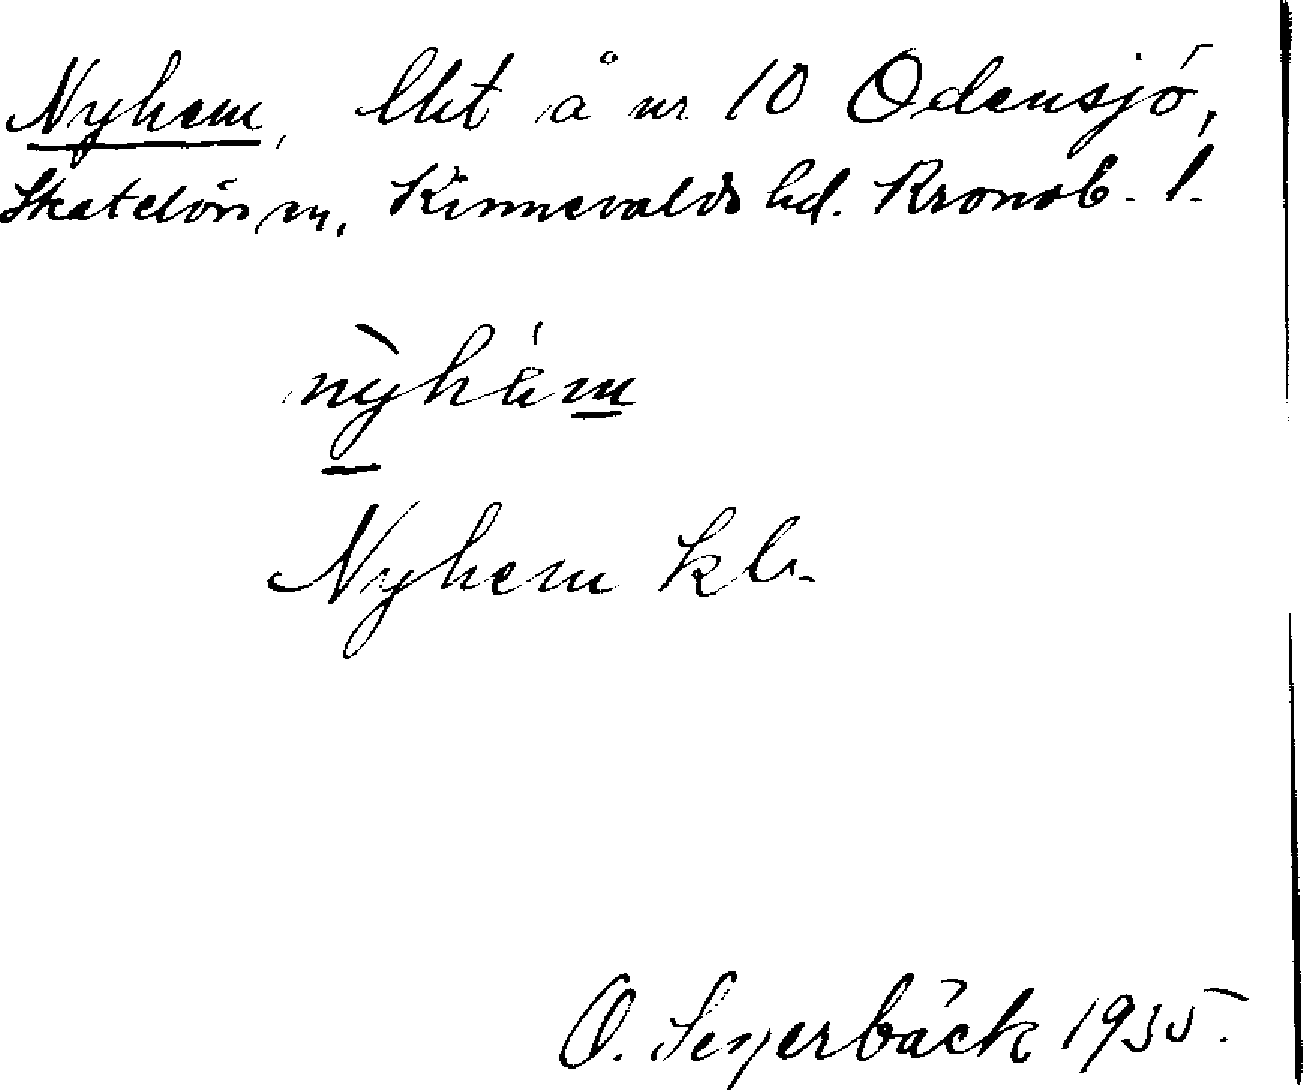 Nyhem, lht å nr 10 Odensjö,
Skatelövs sn, Kinnevalds hd. Kronob. l.
nỳhém
Nyhem kb.
O. 1935.